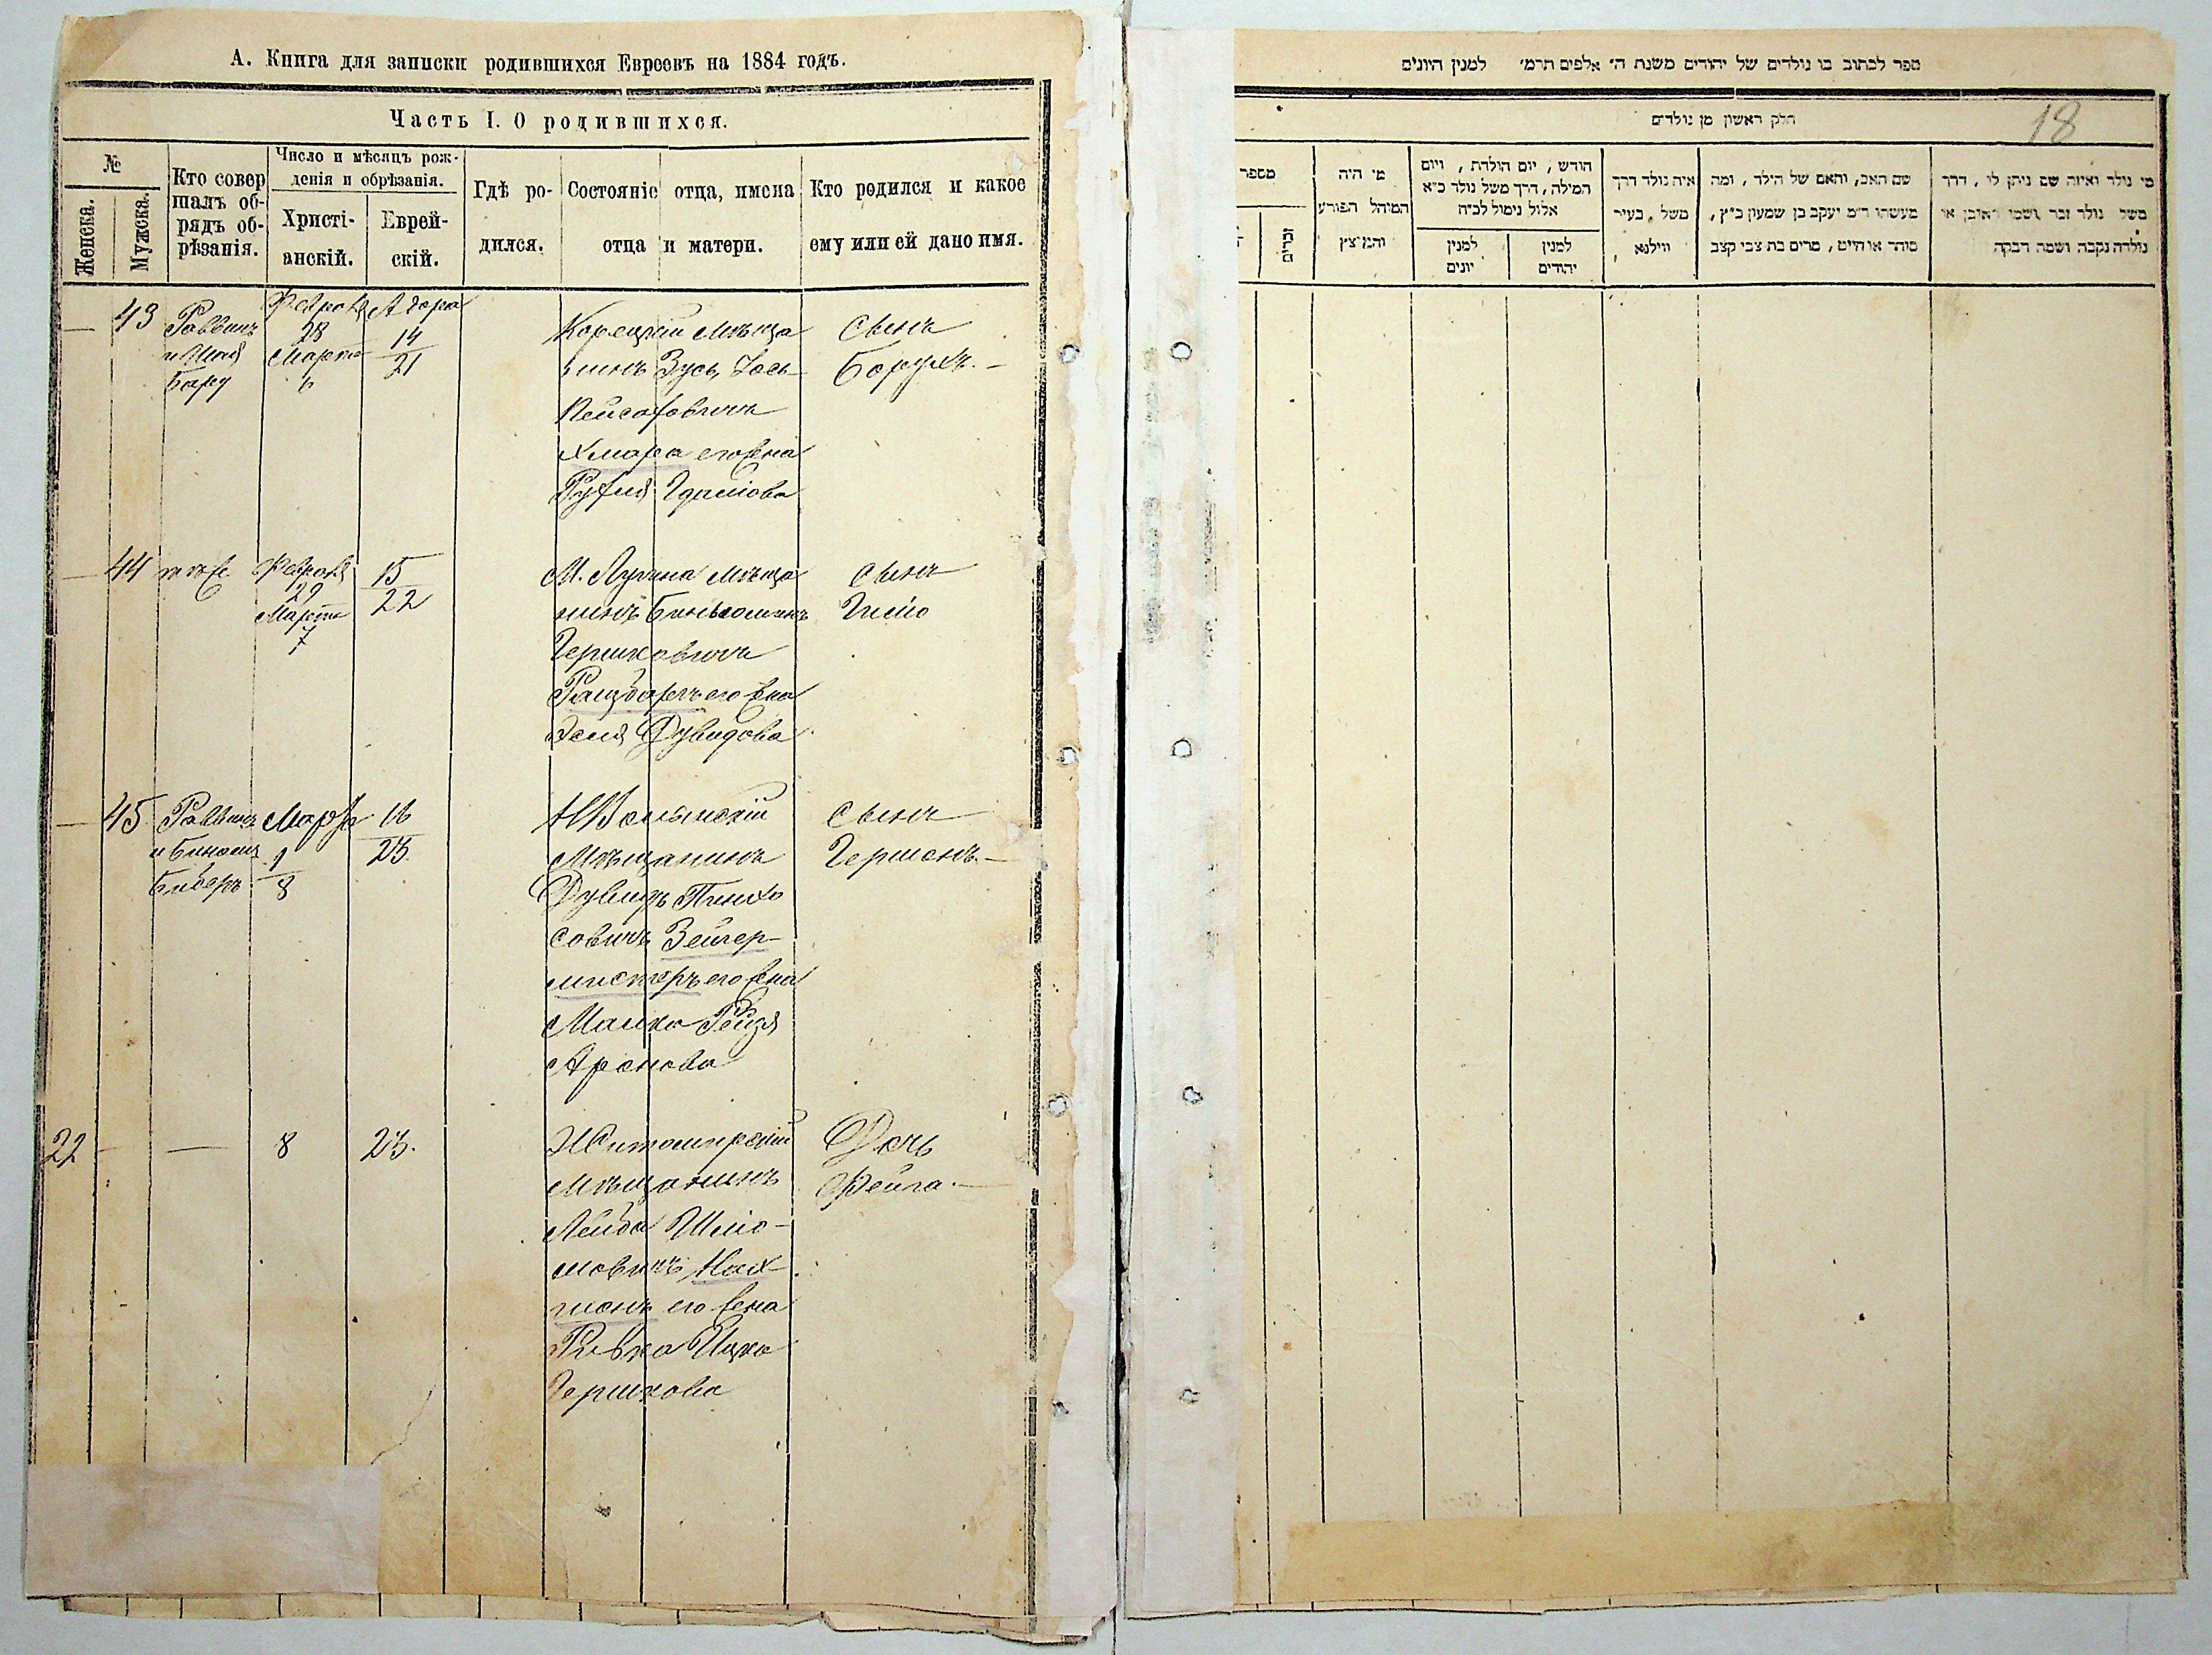 А. Книга для записки родившихся Евреевъ на 1884 годъ.
Часть I. О родившихся.
№
Женска.
Мужска.
Кто совер
шалъ об-
рядъ об-
рѣзанія.
Число и мѣсяцъ рож-
денія и обрѣзанія.
Христі-
анскій.
Еврей-
скій.
Гдѣ ро-
дился.
Состояніе отца, имена
отца и матери.
Кто родился и какое
ему или ей дано имя.
— 43
Раввинъ
и
Февраля
28
Марта
6
Адара
14
21
Корецкій мѣща
нинъ Зусь Іось
Пейсаховичъ
Хмара его жена
Рухля
Сынъ
Борухъ. —
— 44
тоже
Февраля
29
Марта
7
15
22
мѣща
нинъ
Гершковичъ
его жена
Дувидова
Сынъ
— 45
Раввинъ
и
Марта
1
8
16
23.
Мѣщанинъ
Дувидъ Пинхо
совичъ Зейгер-
мистеръ его жена
Малка Рейзя
Аронова
Сынъ
Гершонъ. —
22 — —
8
23.
Житомирскій
мѣщанинъ
Лейба Шлио-
мовичъ
его жена
Ривка Ицко
Гершкова
Дочь
Фейга. —
ספר לכתוב בו נולדים של יהודים משנת ה׳ אלפים תרמ׳ למנין היונים
18
חלק ראשון מן נולדים
מי נולד ואיזה שם ניתן לו, דרך
משל נולד זכר ושמו ראובן או
נולדה נקבה ושמה רבקה
שם האב, והאם של הילד, ומה
מעשהו ר״מ יעקב בן שמעון כ״ץ,
סוחר או חייט, מרים בת צבי קצב
איה נולד דרך
משל, בעיר
ווילנא
חודש, יום הולדת, ויום
המילה, דרך משל נולד כ״א
אלול נימול לכ״ח
למנין
יהודים
למנין
יונים
מי היה
המוהל הפורע
והמוצץ
מספר
זכרים